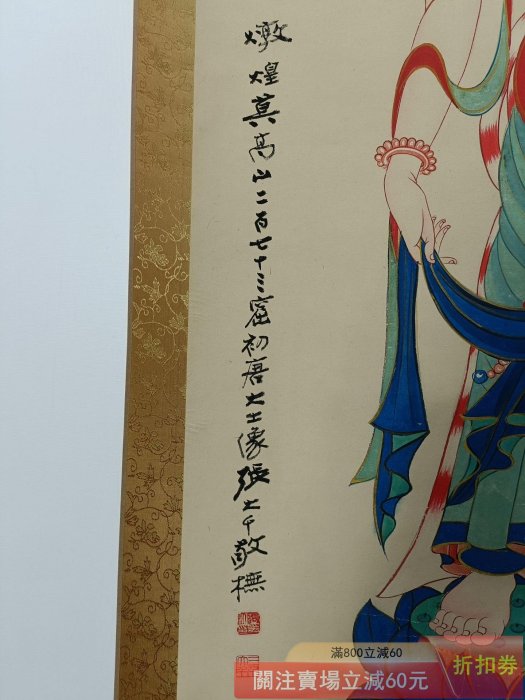 燉煌莫高山二百七十三窟初唐大士像張大千敬橅
滿800立減60
關注賣場立減60元
折扣券